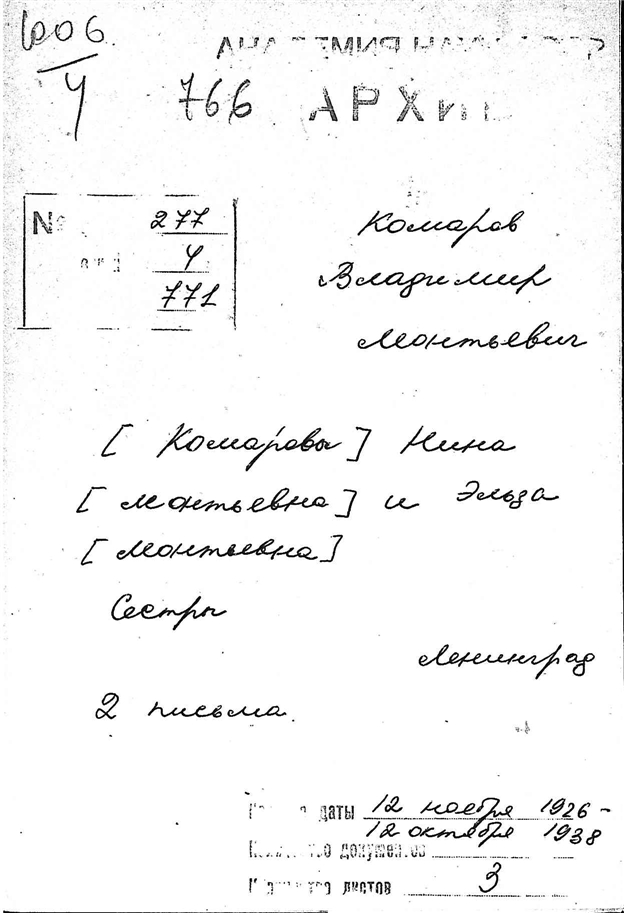 1006
4
766
АРХИ
№ 277
4
771
Комаров
Владимир
Леонтьевич
[Комаровы] Нина
[Леонтьевна] и Эльза
[Леонтьевна]
Сестры
Ленинград
2 письма.
даты 12 ноября 1926 –
12 октября 1938
документов
листов 3